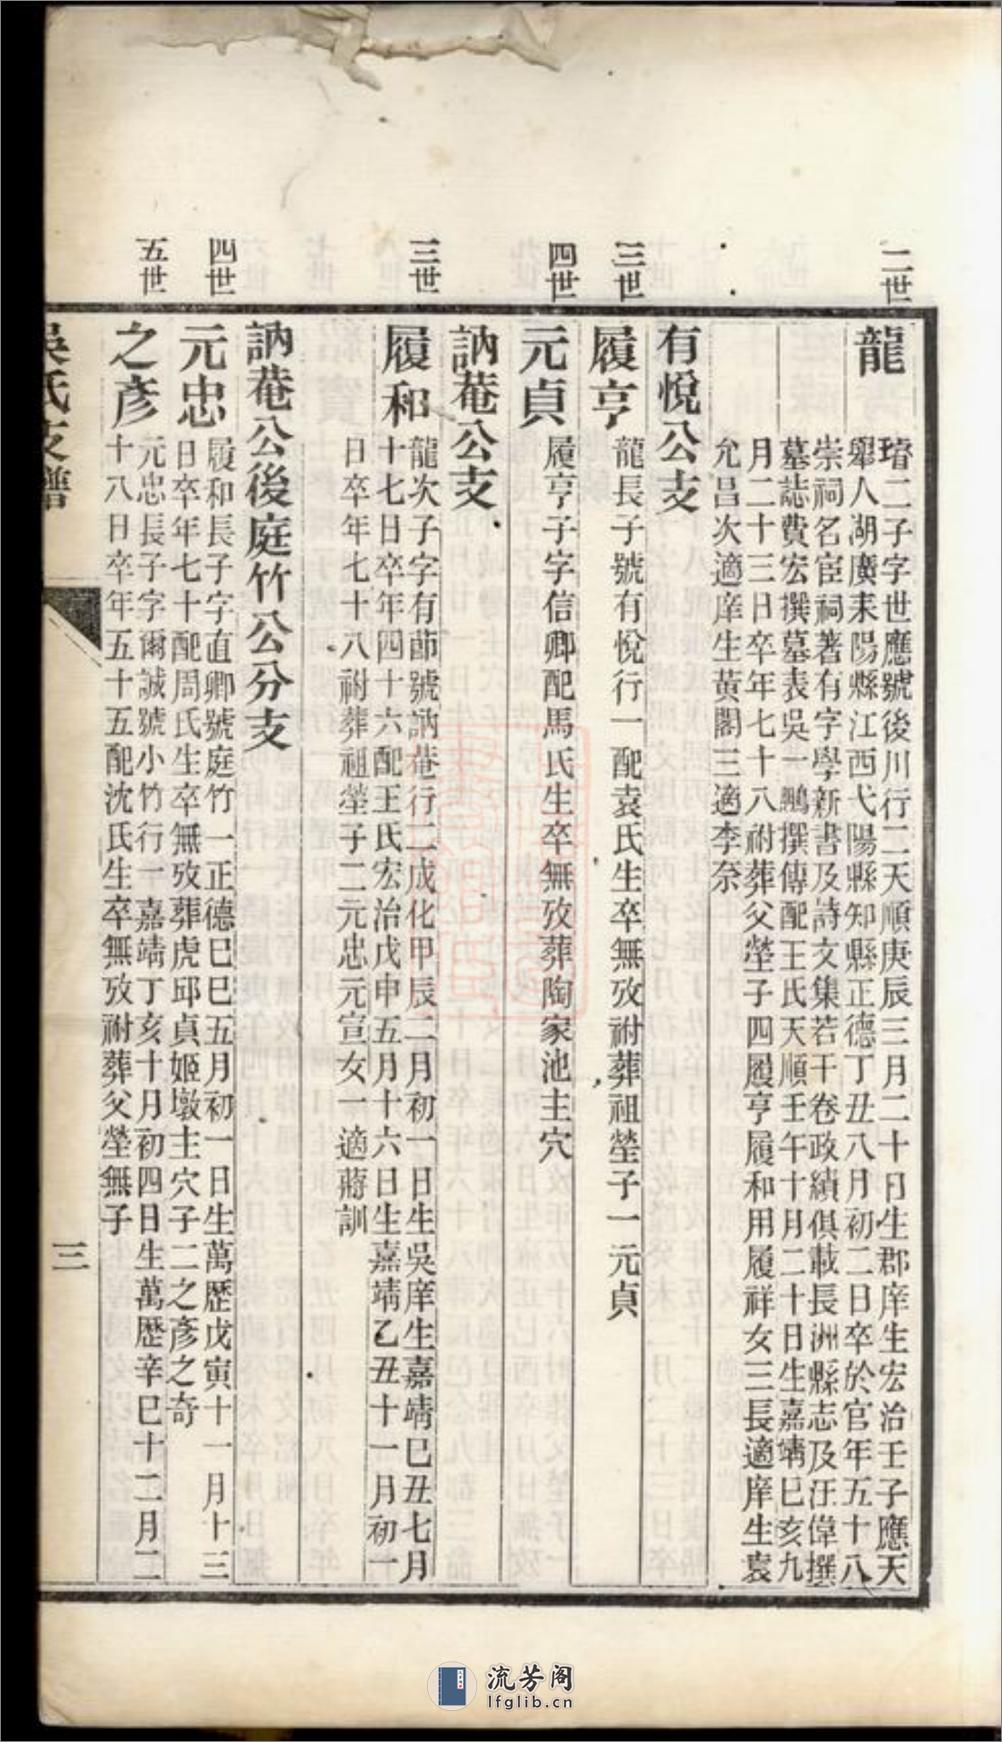 二世
龍
璿二子字世應號後川行二天順庚辰三月二十日生郡庠生宏治壬子應天
舉人湖廣耒陽縣江西弋陽縣知縣正德丁丑八月初二日卒於官年五十八
崇祠名宦祠著有字學新書及詩文集若干卷政績俱載長洲縣志及汪偉撰
墓誌費宏撰墓表吳一鵬撰傳配王氏天順壬午十月二十日生嘉靖巳亥九
月二十三日卒年七十八祔葬父塋子四履亨履和用履祥女三長適庠生袁
允昌次適庠生黃閣三適李奈
有悅公支
三世
履亨
龍長子號有悅行一配袁氏生卒無攷祔葬祖塋子一元貞
四世
元貞
履亨子字信卿配馬氏生卒無攷葬陶家池主穴
訥菴公支
三世
履和
龍次子字有節號訥菴行二成化甲辰二月初一日生吳庠生嘉靖巳丑七月
十七日卒年四十六配王氏宏治戊申五月十六日生嘉靖乙丑十一月初一
日卒年七十八祔葬祖塋子二元忠元宣女一適蔣訓
訥菴公後庭竹公分支
四世
元忠
履和長子字直卿號庭竹一正德巳巳五月初一日生萬歷戊寅十一月十三
日卒年七十配周氏生卒無攷葬虎邱貞姬墩主穴子二之彥之奇
五世
之彥
元忠長子字爾誠號小竹行一嘉靖丁亥十月初四日生萬歷辛巳十二月二
十八日卒年五十五配沈氏生卒無攷祔葬父塋無子
吳氏支譜
三
流芳阁
lfglib.cn